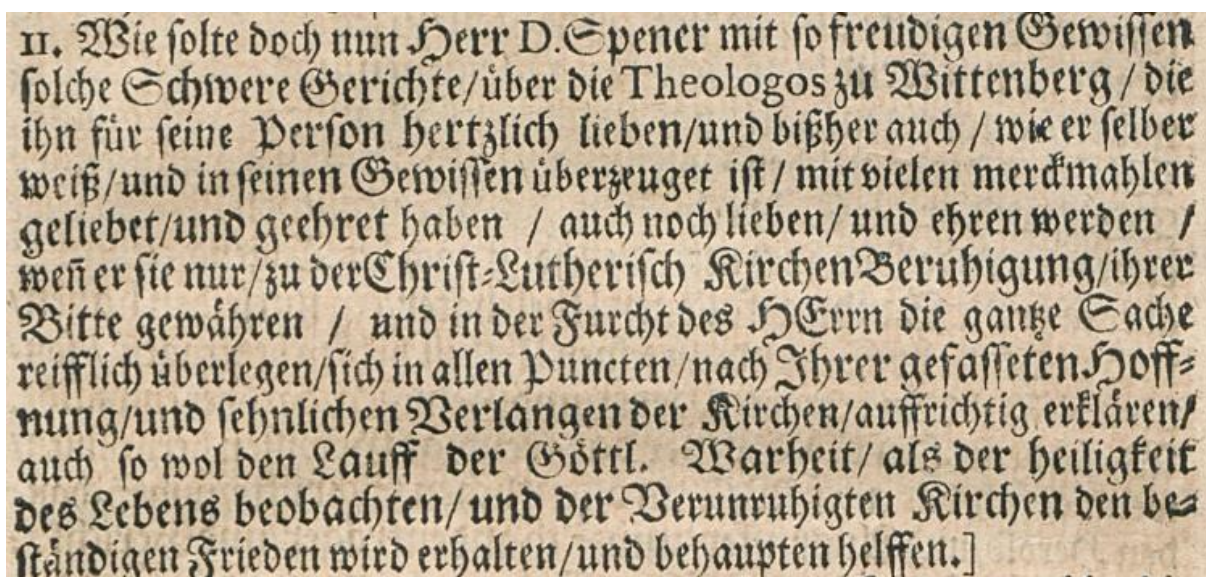 II. Wie ſolte doch nun Herr D. Spener mit ſo freudigen Gewiſſen
ſolche Schwere Gerichte/über die Theologos zu Wittenberg / die
ihn für ſeine Perſon hertzlich lieben/und bißher auch / wie er ſelber
weiß/und in ſeinen Gewiſſen überzeuget iſt / mit vielen merckmahlen
geliebet/und geehret haben / auch noch lieben/ und ehren werden /
weñ er ſie nur/zu der Chriſt-Lutheriſch Kirchen Beruhigung/ihrer
Bitte gewähren / und in der Furcht des HErrn die gantze Sache
reifflich überlegen/ſich in allen Puncten/nach Ihrer gefaſſeten Hoff-
nung/und ſehnlichen Verlangen der Kirchen/auffrichtig erklären/
auch ſo wol den Lauff der Göttl. Warheit/ als der heiligkeit
des Lebens beobachten/ und der Verunruhigten Kirchen den be-
ſtändigen Frieden wird erhalten/und behaupten helffen.]